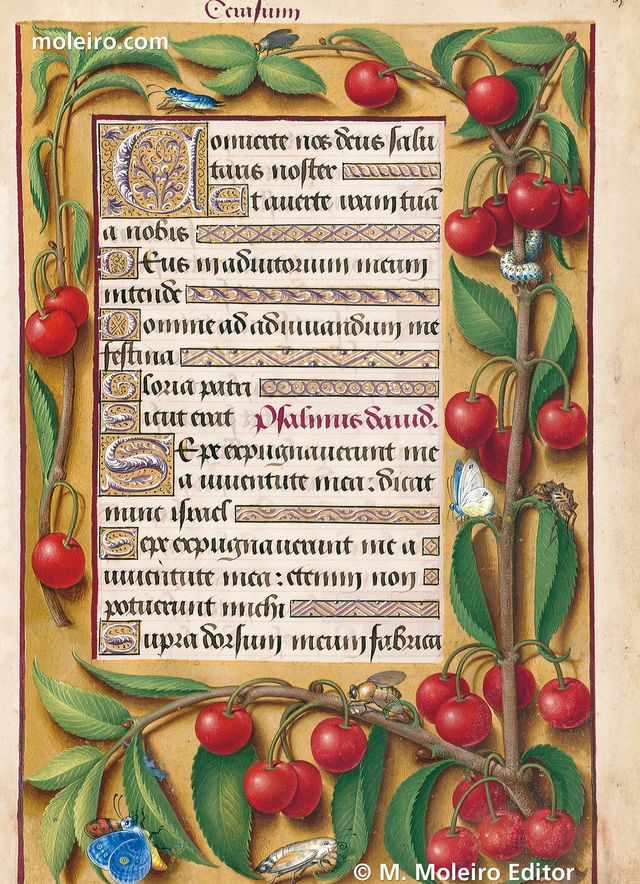 Cerasum
moleiro.com
Conuerte nos deus salu
taris noster
Et auerte iram tuã
a nobis
Deus in adiutorium meum
intende
Domine ad adiuuandum me
festina
Gloria patri
Sicut erat Psalmus dauid.
Sepe expugnauerunt me
a iuuentute mea: dicat
nunc israel
Sepe expugnauerunt me a
iuuentute mea: etenim non
potuerunt michi
Supra dorsum meum fabrica
© M. Moleiro Editor